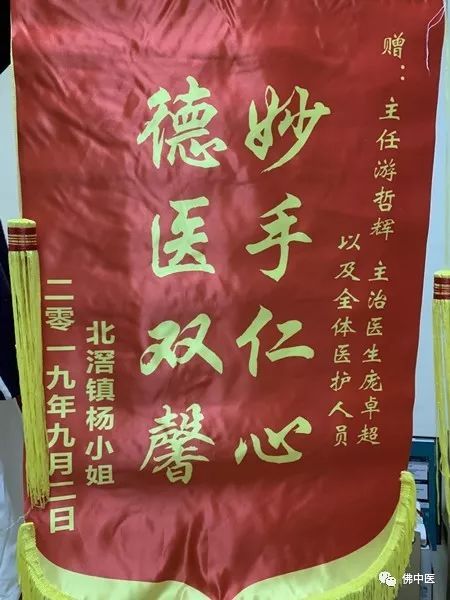 赠：主任游哲辉 主治医生庞卓超
以及全体医护人员
妙手仁心
德医双馨
北滘镇杨小姐
二零一九年九月二日
佛中医